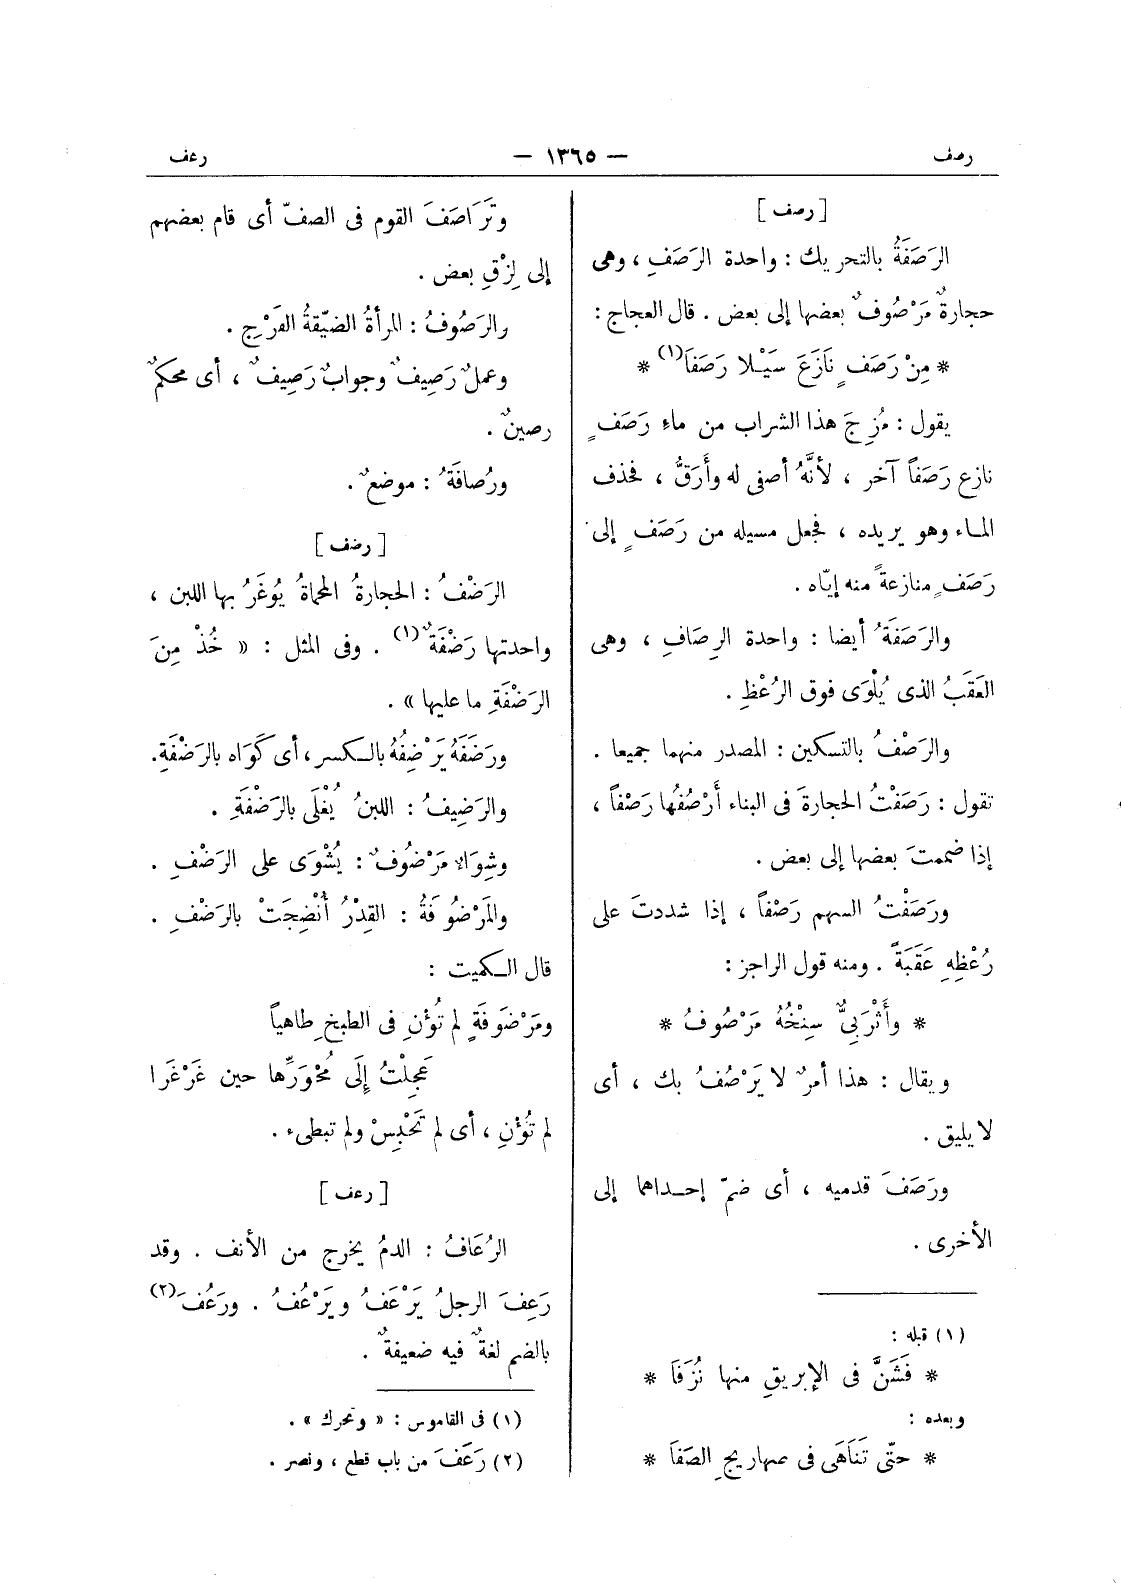 رصف — ١٣٦٥ — رعف
[ رصف ]
الرَصَفَةُ بالتحريك : واحدة الرَصَفِ ، وهى
حجارةٌ مَرْصُوفٌ بعضها إلى بعض . قال العجاج :
* مِنْ رَصَفٍ نَازَعَ سَيْلا رَصَفَا(١) *
يقول : مُزِجَ هذا الشراب من ماءِ رَصَفٍ
نازع رَصَفاً آخر ، لأنَّهُ أصفى له وأَرَقُّ ، فحذف
الماء وهو يريده ، فجعل مسيله من رَصَفٍ إلى
رَصَفٍ منازعةً منه إيّاه .
والرَصَفَةُ أيضا : واحدة الرِصَافِ ، وهى
العَقَبُ الذى يُلْوَى فوق الرُعْظِ .
والرَصْفُ بالتسكين : المصدر منهما جميعا .
تقول : رَصَفْتُ الحجارةَ فى البناء أَرْصُفُها رَصْفاً ،
إذا ضممتَ بعضها إلى بعض .
ورَصَفْتُ السهم رَصْفاً ، إذا شددتَ على
رُعْظِهِ عَقَبَةً . ومنه قول الراجز :
* وأَثْرَبِىٌّ سِنْخُهُ مَرْصُوفُ *
ويقال : هذا أمرٌ لا يَرْصُفُ بك ، أى
لا يليق .
ورَصَفَ قدميه ، أى ضمّ إحداهما إلى
الأخرى .
(١) قبله :
* فَشَنَّ فى الإبريقِ منها نُزَفَا *
وبعده :
* حتّى تَنَاهَى فى صهاريجِ الصَفَا *
وتَرَاصَفَ القوم فى الصفّ أى قام بعضهم
إلى لِزْقِ بعض .
والرَصُوفُ : المرأةُ الضيّقةُ الفَرْجِ .
وعملٌ رَصِيفٌ وجوابٌ رَصِيفٌ ، أى محكمٌ
رصينٌ .
ورُصافَةُ : موضعٌ .
[ رضف ]
الرَضْفُ : الحجارةُ المحماةُ يُوغَرُ بها اللبن ،
واحدتها رَضْفَةٌ(١) . وفى المثل : « خُذْ مِنَ
الرَضْفَةِ ما عليها » .
ورَضَفَهُ يَرْضِفُهُ بالكسر ، أى كَوَاه بالرَضْفَةِ.
والرَضِيفُ : اللبنُ يُغْلَى بالرَضْفَةِ .
وشِوَاءٌ مَرْضُوفٌ : يُشْوَى على الرَضْفِ .
والمَرْضُوفَةُ : القِدْرُ أُنْضِجَتْ بالرَضْفِ .
قال الكميت :
ومَرْضُوفَةٍ لم تُؤْنِ فى الطبخِ طاهياً
عَجِلْتُ إِلَى مُحْوَرِّها حين غَرْغَرَا
لم تُؤْنِ ، أى لم تَحْبِسْ ولم تبطىء .
[ رعف ]
الرُعَافُ : الدمُ يخرج من الأنف . وقد
رَعِفَ الرجلُ يَرْعَفُ ويَرْعُفُ . ورَعُفَ(٢)
بالضم لغةٌ فيه ضعيفةٌ .
(١) فى القاموس : « وتحرك » .
(٢) رَعَفَ من باب قطع ، ونصر .